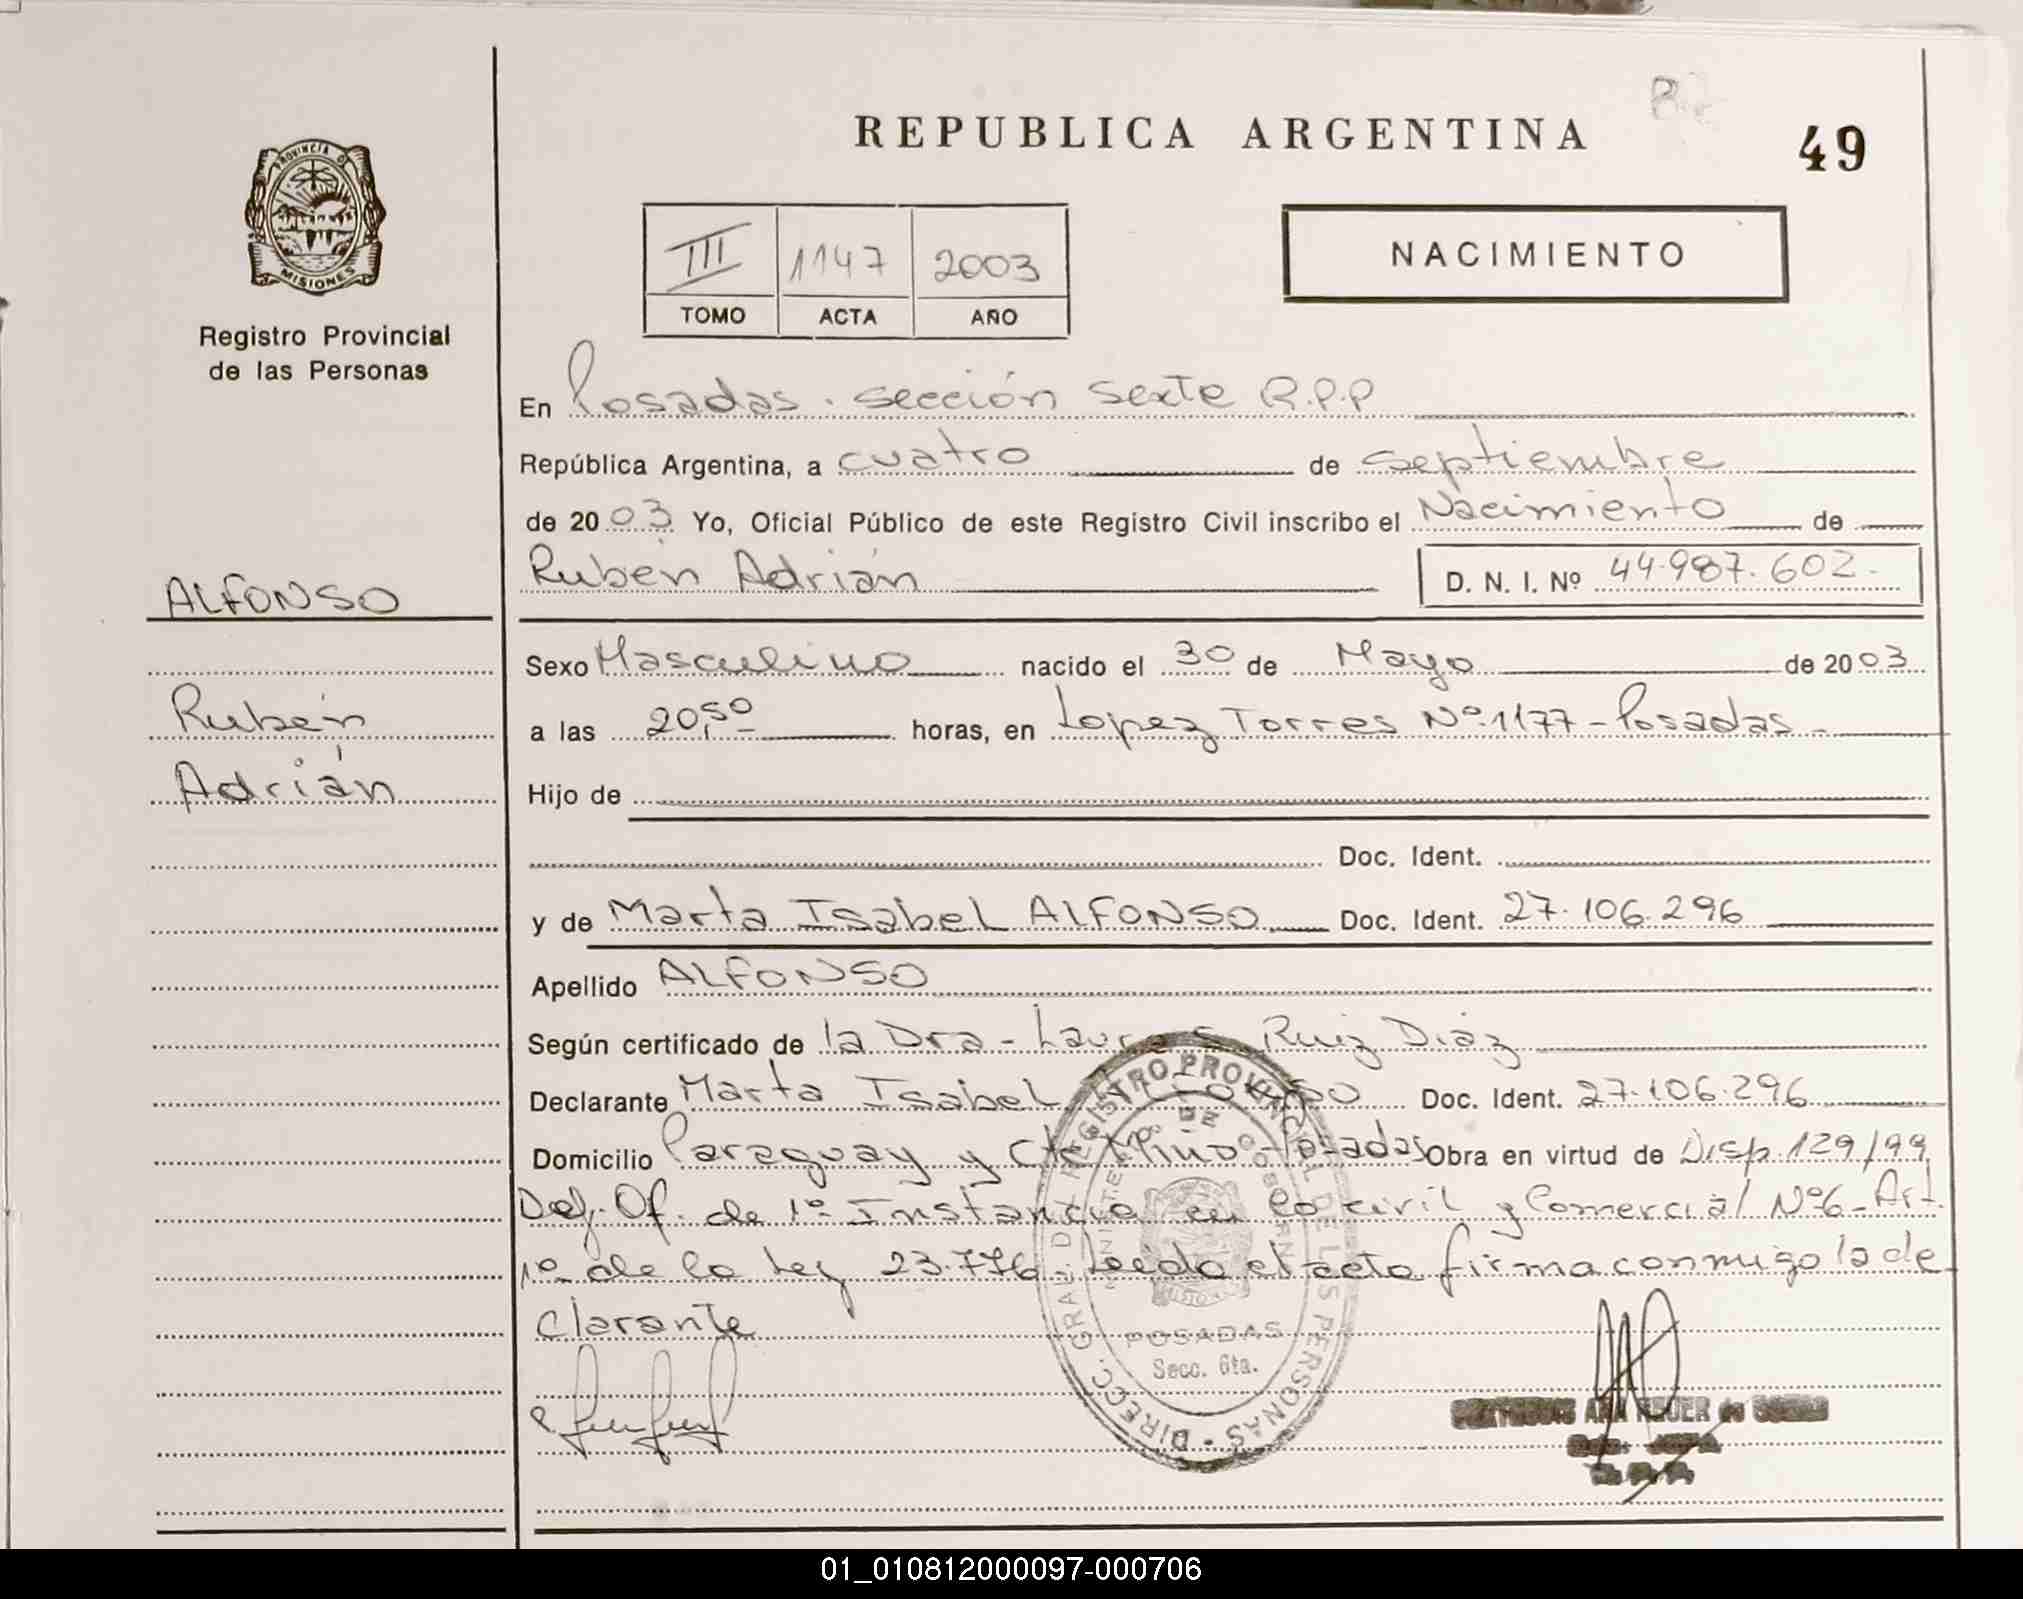 REPUBLICA ARGENTINA
49
PROVINCIA D
MISIONES
Registro Provincial
de las Personas
III 1147 2003
TOMO ACTA AÑO
NACIMIENTO
En Posadas. Sección Sexta R.P.P
República Argentina, a cuatro de septiembre
de 2003 Yo, Oficial Público de este Registro Civil inscribo el Nacimiento de
Rubén Adrián D. N. I. Nº 44.987.602.-
ALFONSO
Rubén
Adrián
Sexo Masculino nacido el 30 de Mayo de 2003
a las 20,50 horas, en Lopez Torres Nº 1177 - Posadas -
Hijo de
Doc. Ident.
y de Marta Isabel ALFONSO Doc. Ident. 27.106.296
Apellido ALFONSO
Según certificado de la Dra - Laura S. Ruiz Diaz
Declarante Marta Isabel Doc. Ident. 27.106.296
Domicilio Paraguay y Posadas Obra en virtud de Disp. 129/99
Def. Of. de 1º Instancia en lo civil y Comercial Nº6 - Art.
1º de la Ley 23.776. Leida el acta firma conmigo la de
clarante
DIRECC. GRAL. DEL REGISTRO PROVINCIAL DE LAS PERSONAS
POSADAS
Secc. 6ta.
ANA de
01_010812000097-000706